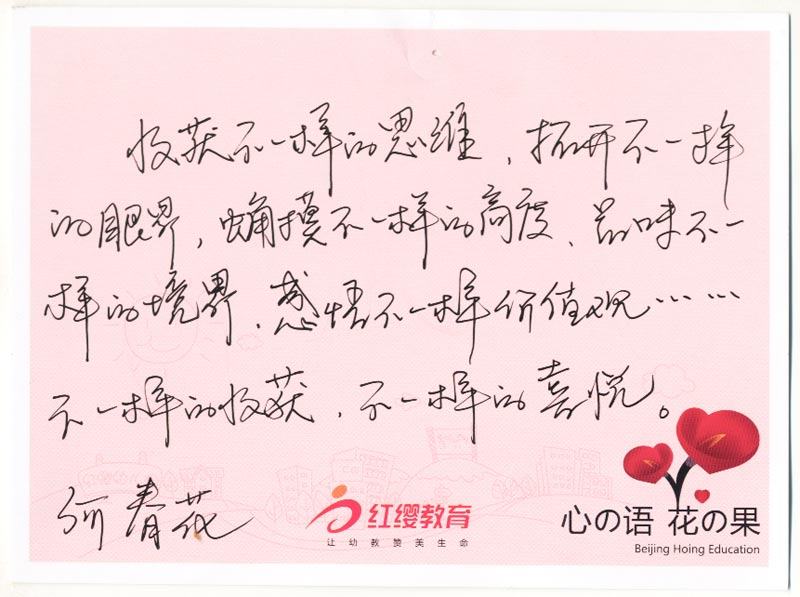 收获不一样的思维，拓开不一样
的眼界，触摸不一样的高度、品味不一
样的境界、感悟不一样价值观……
不一样的收获，不一样的喜悦。
春花
红缨教育
让幼教赞美生命
心の语 花の果
Beijing Hoing Education